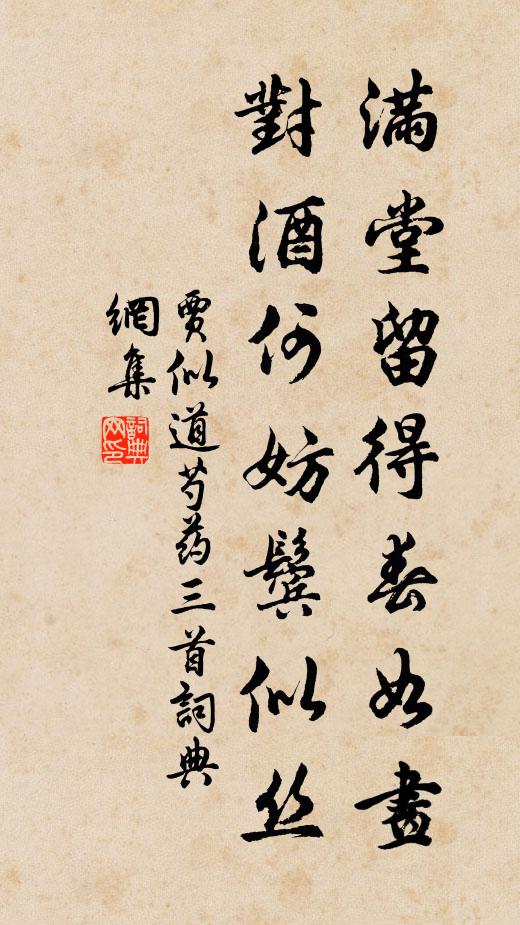 滿堂留得春如畫
對酒何妨鬓似丝
賈似道芍药三首詞典
網集
詞典
网印